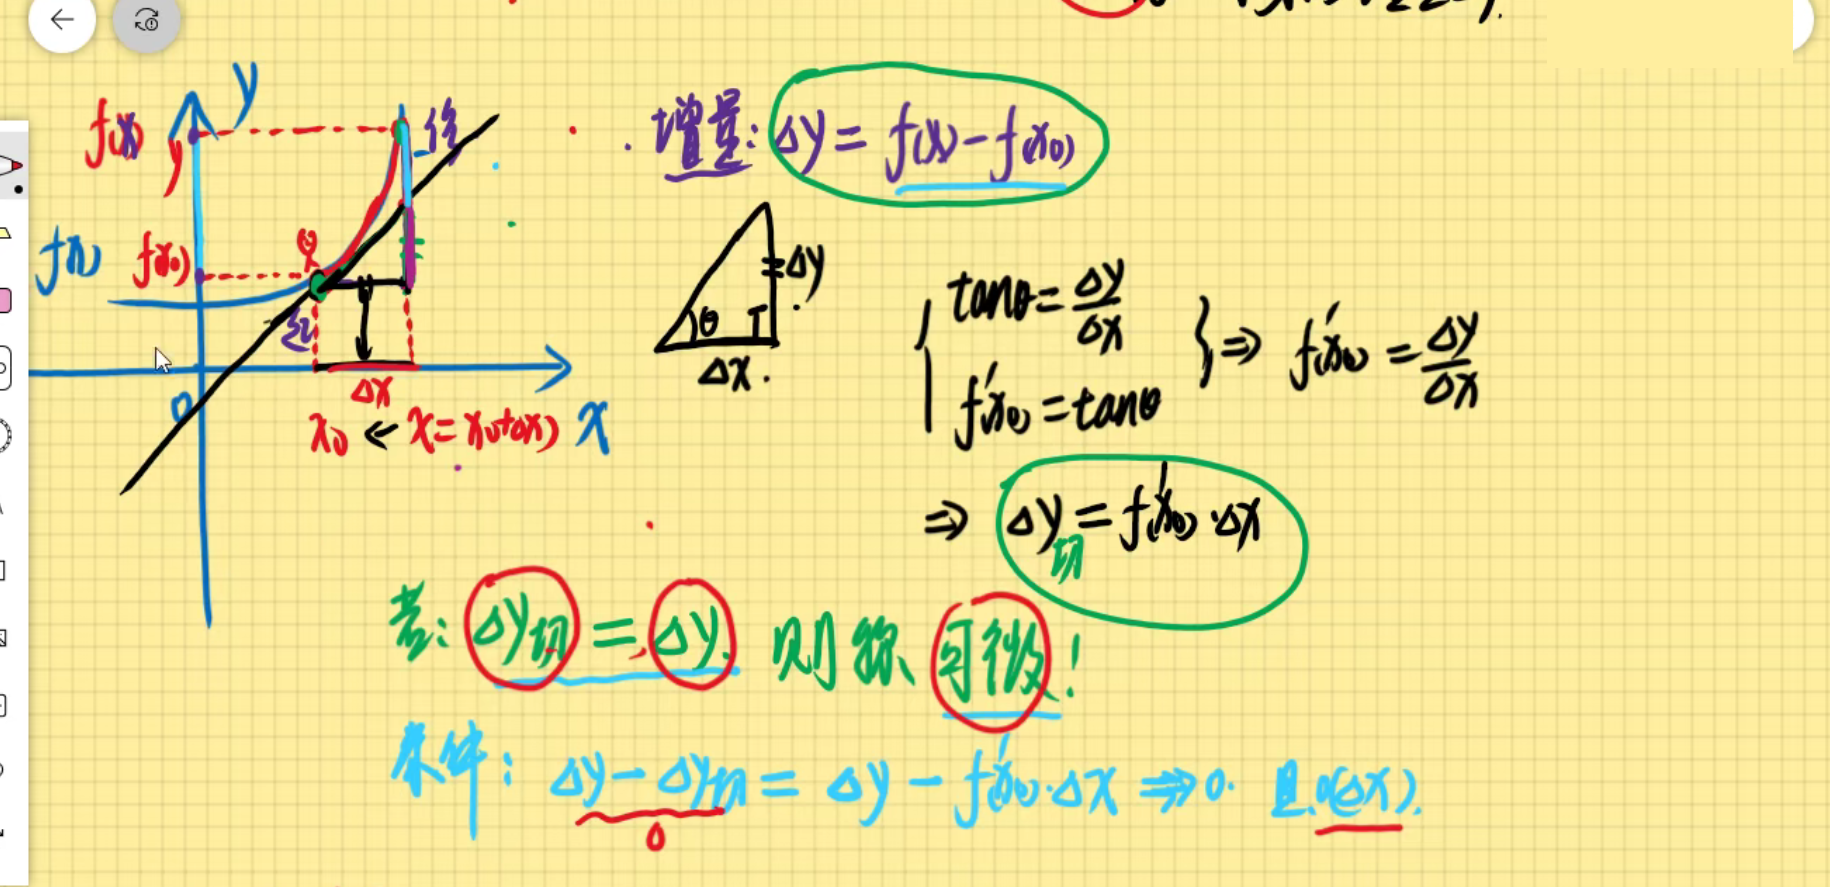 y
f(x)
y
f(x)
f(x₀)
θ
Δx
0
x₀ ← x=x₀+Δx)
x
增量: Δy = f(x) - f(x₀)
θ
Δy
Δx.
tanθ = Δy/Δx
f'(x₀) = tanθ
} ⇒ f'(x₀) = Δy/Δx
⇒ Δy切 = f'(x₀)·Δx
若: Δy切 = Δy. 则称 可微!
条件: Δy - Δy切 = Δy - f'(x₀)·Δx ⇒ 0. 且 o(Δx).
0